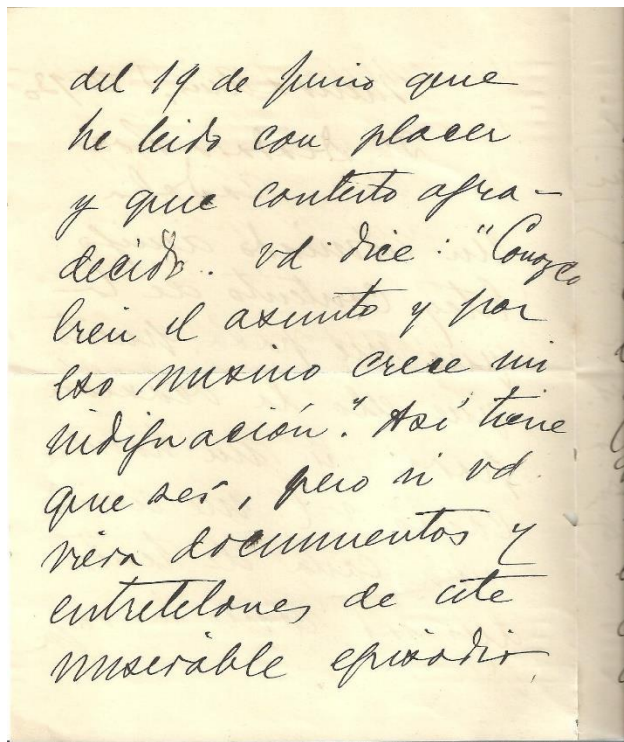 del 19 de junio que
he leido con placer
y que contesto agra-
decido. vd. dice: "Conozco
bien el asunto y por
eso mismo crece mi
indignación". Así tiene
que ser, pero si vd.
viera documentos y
entretelones de este
miserable episodio,